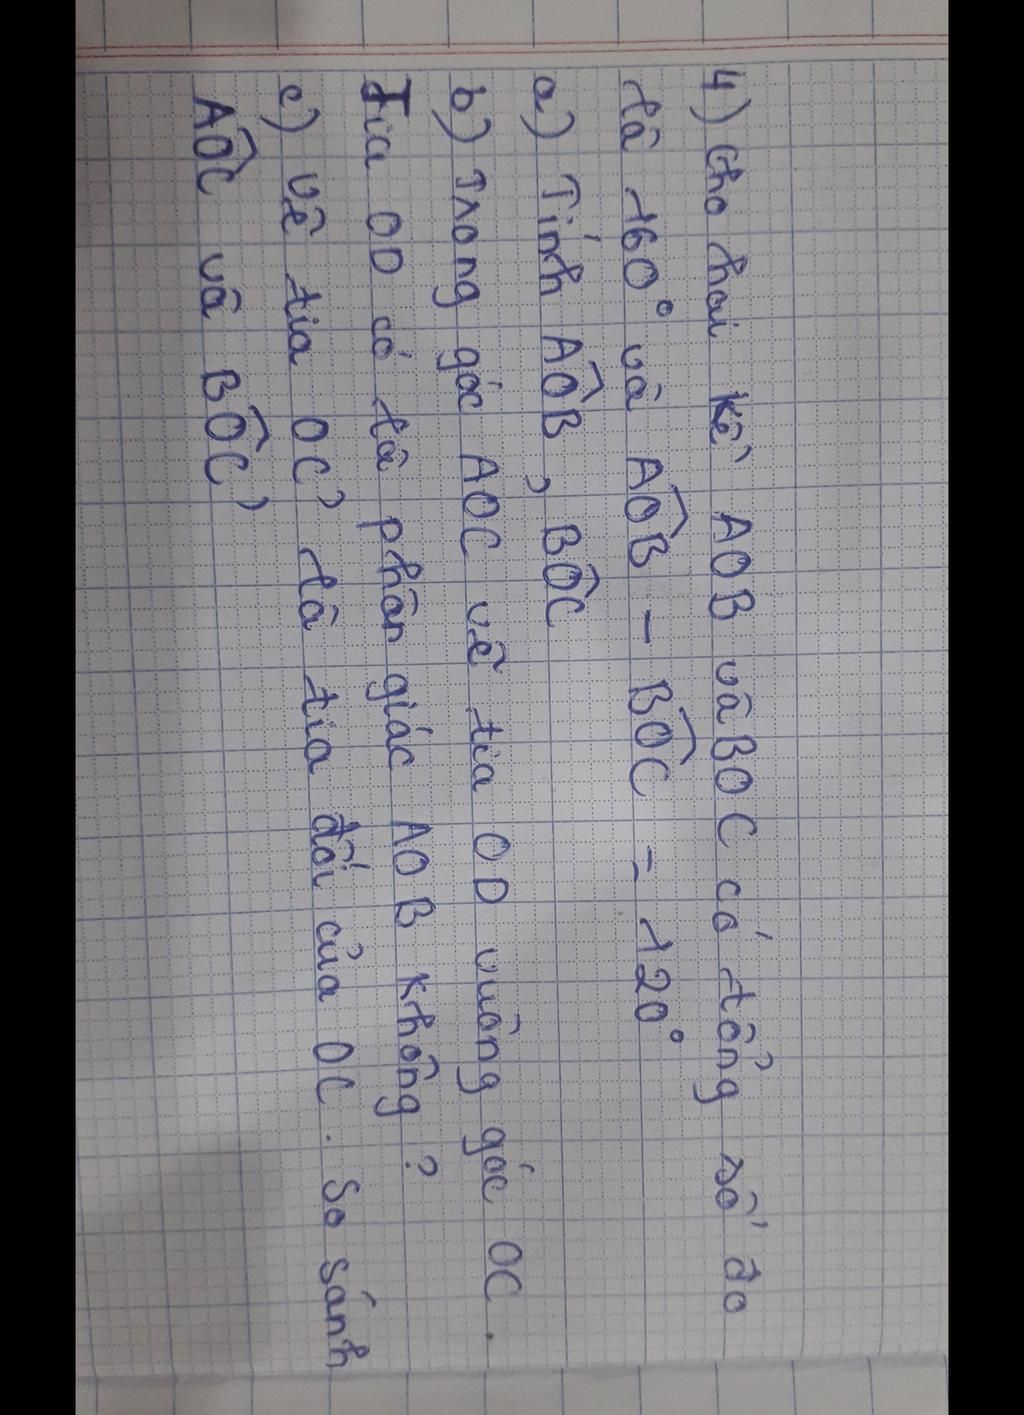 4) Cho hai kề AOB và BOC có tổng số đo
là 160° và AÔB - BÔC = 120°
a) Tính AÔB, BÔC
b) Trong góc AOC vẽ tia OD vuông góc OC.
Tia OD có là phân giác AOB không?
c) Vẽ tia OC' là tia đối của OC. So sánh
AÔC và BÔC'